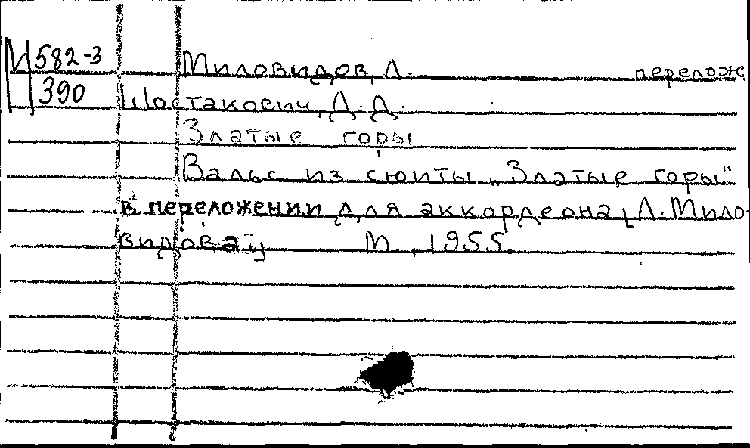 М 582-3 Миловидов, Л. перелож
390 Шостакович, Д. Д.
Златые горы
Вальс из сюиты „Златые горы"
в переложении для аккордеона (Л. Мило-
видова) М., 1955.